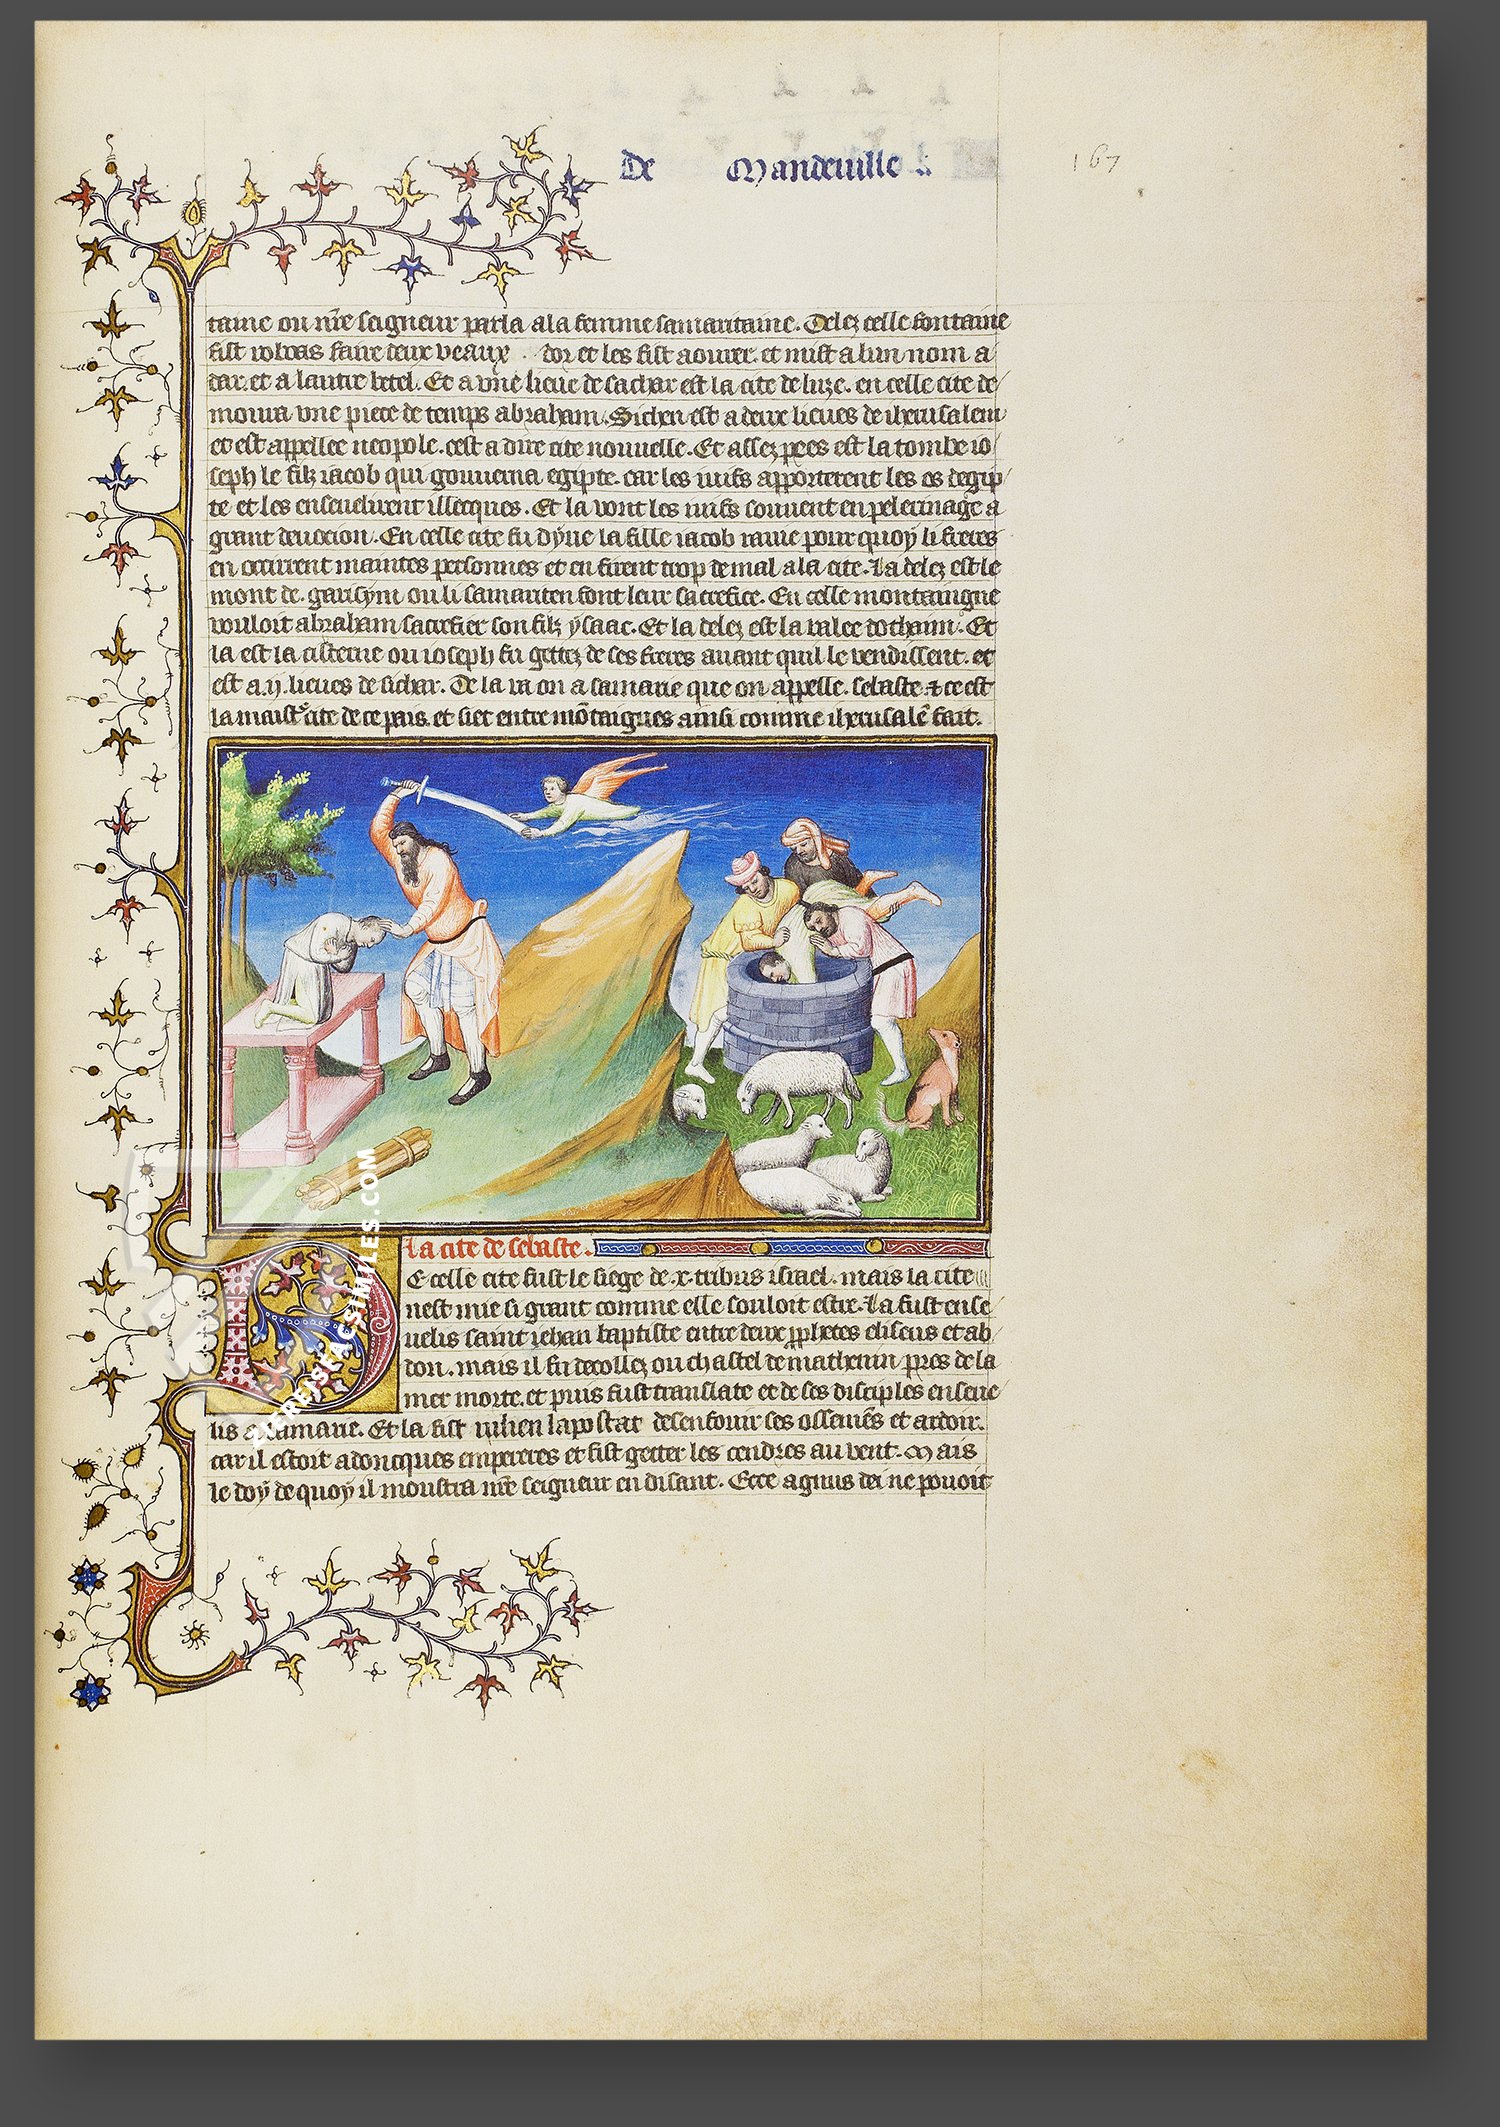 De Mandeuille
167
taine ou nr̃e seigneur parla a la femme samaritaine. Delez celle fontaine
fist roboas faire deux veaux dor et les fist aourer. et mist a lun nom a
dar. et a lautre betel. Et a vne lieue de sachar est la cite de luze. en celle cite de
moura vne piece de temps abraham. Sichen est a deux lieues de iherusalem
et est appellee neopole. cest a dire cite nouuelle. Et assez pres est la tombe io
seph le filz iacob qui gouuerna egipte. car les iuifs apporterent les os degip
te et les enseuelirent illecques. Et la vont les iuifs souuent en pelerinage a
grant deuocion. En celle cite fu dyne la fille iacob rauie pour quoy li freres
en occirrent maintes personnes et en firent trop de mal a la cite. La delez est le
mont de garisym ou li samariten font leur sacrefice. En celle montaingne
vouloit abraham sacrefier son filz ysaac. Et la delez est la valee dothaim. Et
la est la cisterne ou ioseph fu gettez de ses freres auant quil le vendissent. et
est a .ij. lieues de sichar. De la va on a samarie que on appelle. sebaste. ⁊ ce est
la maistr̃ cite de ce pais. et siet entre mõtaignes ainsi comme iherusalẽ fait.
La cite de sebaste.
De celle cite fust le siege de .x. tribus israel. mais la cite
nest mie si grant comme elle souloit estre. La fust ense
uelis saint iehan baptiste entre deux pphetes eliseus et ab
don. mais il fu decollez ou chastel de matherin pres de la
mer morte. et puis fust translate et de ses disciples enseue
lis a samarie. Et la fist iulien lapostat desenfouir ses ossemẽs et ardoir.
car il estoit adoncques empereres et fist getter les cendres au vent. Mais
le doy de quoy il moustra nr̃e seigneur en disant. Ecce agnus dei ne pouoit
ZIEREISFACSIMILES.COM